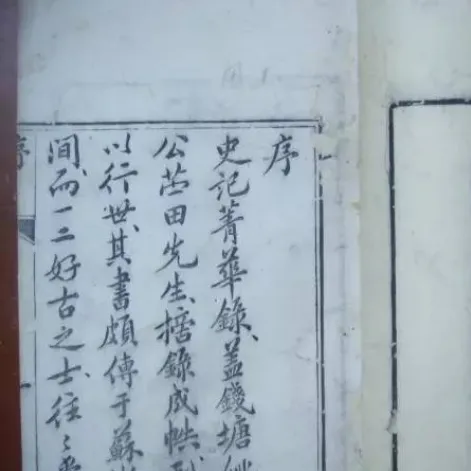 序
史記菁華錄、蓋錢塘
公苎田先生、摿錄成帙
以行世、其書頗傳于蘇
間、而一二好古之士、往〻
序